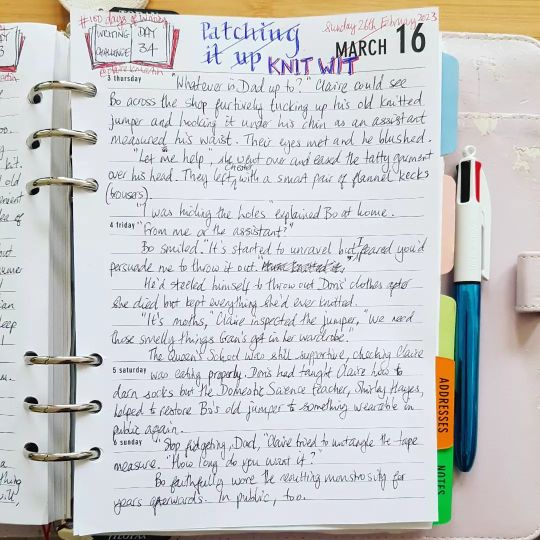 #100 days of writing
WRITING DAY
CHALLENGE 34
Patching
it up KNIT WIT
Sunday 26th February 2023
MARCH 16
3 thursday
"Whatever is Dad up to?" Claire could see
Bo across the shop furtively tucking up his old knitted
jumper and hooking it under his chin as an assistant
measured his waist. Their eyes met and he blushed.
"Let me help, she went over and eased the tatty garment
over his head. They left Chester with a smart pair of flannel kecks
(trousers).
"I was hiding the holes" explained Bo at home.
4 friday "From me or the assistant?"
Bo smiled. "It's started to unravel but I feared you'd
persuade me to throw it out."
He'd steeled himself to throw out Doris' clothes after
she died but kept everything she'd ever knitted.
"It's moths," Claire inspected the jumper, "We need
those smelly things Gran's got in her wardrobe."
The Queen's School was still supportive, checking Claire
5 saturday was eating properly. Doris had taught Claire how to
darn socks but the Domestic Science teacher, Shirley Hayes,
helped to restore Bo's old jumper to something wearable in
public again.
6 sunday "Stop fidgeting, Dad," Claire tried to untangle the tape
measure. "How long do you want it?"
Bo faithfully wore the resulting monstrosity for
years afterwards. In public, too.
ADDRESSES
NOTES